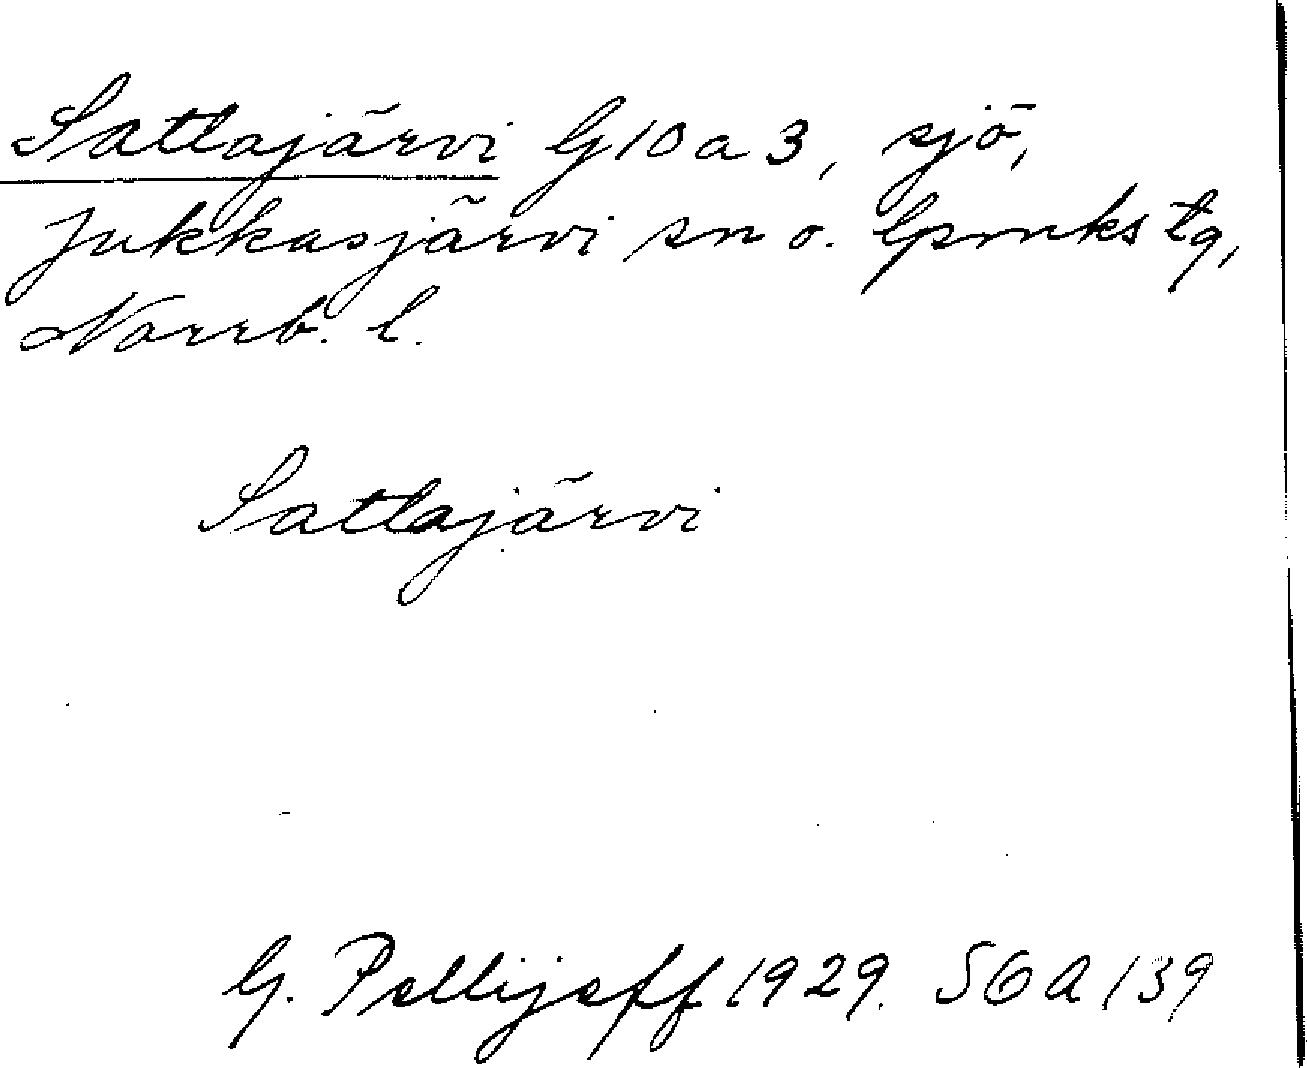 Sattajärvi G10a3, sjö,
Jukkasjärvi sn o. lpmkstg,
Norrb. l.
Sattajärvi
G. Pellijeff 1929. SGA 139